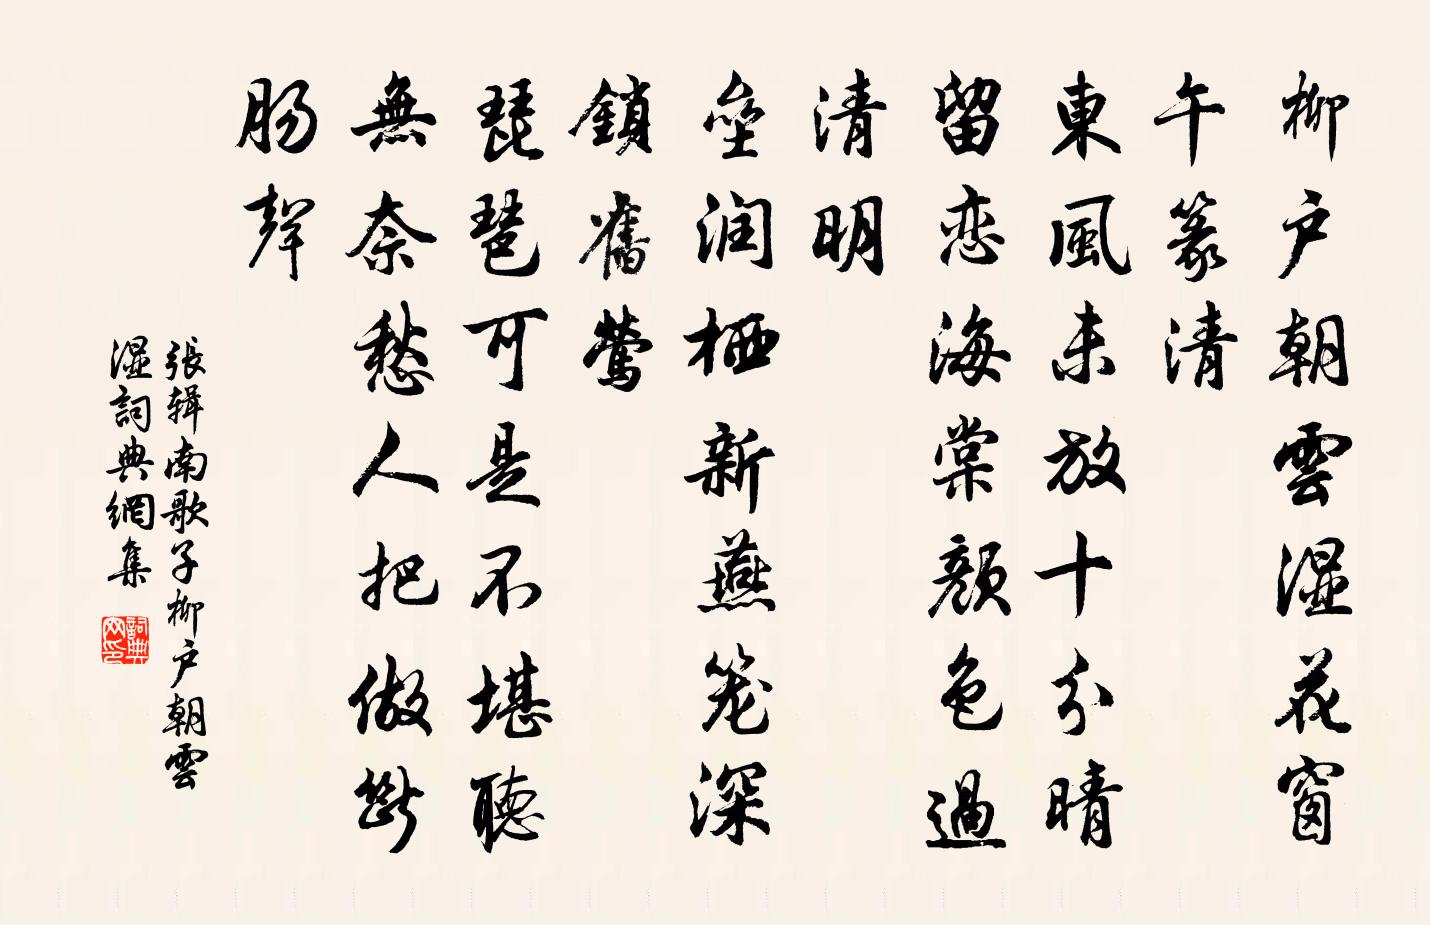 柳户朝雲濕花窗
午篆清
東風未放十分晴
留恋海棠顔色過
清明
壘润栖新燕笼深
鎖舊鶯
琵琶可是不堪聽
無奈愁人把做斷
肠聲
張辑南歌子柳户朝雲
濕詞典網集
詞典网印